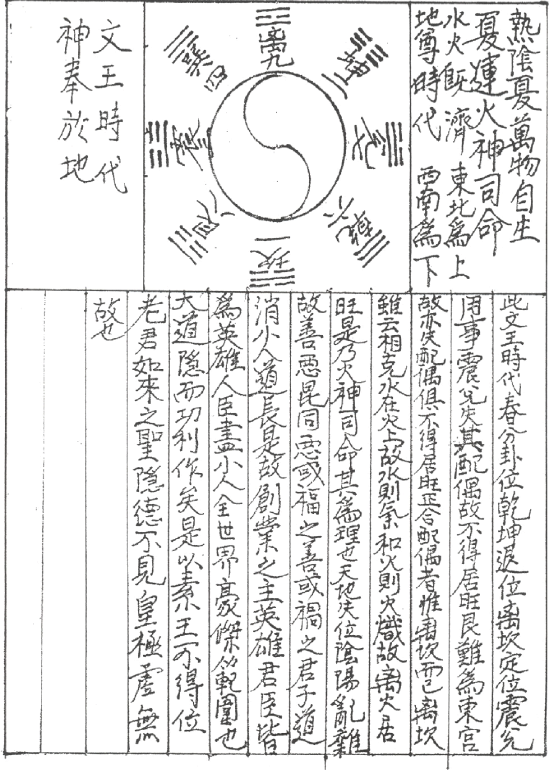 熱陰夏萬物自生
夏運火神司命
水火旣濟 東北爲上
地尊時代 西南爲下
離九
坤二
兌七
乾六
坎一
艮八
震三
巽四
文王時代
神奉於地
此文王時代春分卦位乾坤退位离坎定位震兌
用事震兌失其配偶故不得居旺艮難爲東宮
故亦失配偶俱不得居旺正合配偶者惟离坎而已离坎
雖云相克水在火上故水則氣和火則火熾故离火居
旺是乃火神司命其爲理也天地失位陰陽亂雜
故善惡毘同惡或福之善或禍之君子道
消小人道長是故創業之主英雄君臣皆
爲英雄人臣盡小人全世界豪傑似範圍也
大道隱而功利作矣是以素王不得位
老君如來之聖隱德不見皇極虛無
故也